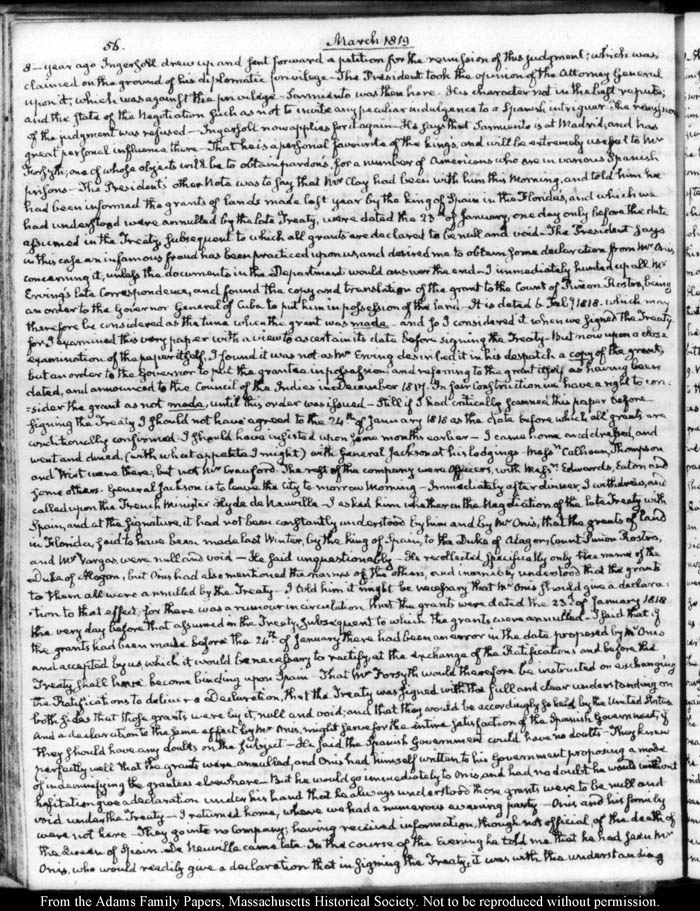 56.
March 1819
8- year ago Ingersoll drew up and sent forward a petition for the remission of this judgment; which was
claimed on the ground of his diplomatic privilege - The President took the opinion of the Attorney General
upon it; which was against the privilege - Sarmiento was then here. His character not in the best repute;
and the state of the Negotiation such as not to invite any peculiar indulgence to a Spanish intriguer; the remission
of the judgment was refused - Ingersoll now applies for it again - He says that Sarmiento is at Madrid, and has
great personal influence there - That he is a personal favourite of the king's, and will be extremely useful to Mr
Forsyth; one of whose objects will be to obtain pardons, for a number of Americans who are in various Spanish
prisons - The President's other Note was to say that Mr Clay had been with him this Morning, and told him he
had been informed the grants of lands made last year by the king of Spain in the Florida's, and which we
had understood were annulled by the late Treaty, were dated the 23d of January, one day only before the date
assumed in the Treaty, subsequent to which all grants are declared to be null and void - The President says
in this case an infamous fraud has been practiced upon us, and desired me to obtain some declaration from Mr Onis
concerning it, unless the documents in the Department would answer the end - I immediately hunted up all Mr
Erving's late Correspondence, and found the copy and translation of the grant to the Count of Puñon Rostro, being
an order to the Governor General of Cuba to put him in possession of the land - It is dated 6 Feby 1818. which may
therefore be considered as the time when the grant was made - and so I considered it when we signed the Treaty.
for I examined this very paper with a view to ascertain its date before signing the Treaty - But now upon a close
examination of the paper itself, I found it was not as Mr Erving described it in his despatch a copy of the grant,
but an order to the Governor to put the grantee in possession, and referring to the grant itself as having been
dated, and announced to the Council of the Indies in December 1817. In fair construction we have a right to con-
-sider the grant as not made, until this order was issued - Still if I had critically scanned this paper before
signing the Treaty I should not have agreed to the 24th of January 1818 as the date before which all grants are
conditionally confirmed - I should have insisted upon some months earlier - I came home and dressed, and
went and dined, (with what appetite I might) with General Jackson at his lodgings - Messrs Calhoun, Thompson
and Wirt were there; but not Mr Crawford. The rest of the company were Officers, with Messrs Edwards, Eaton and
some others. General Jackson is to leave the City to morrow Morning - Immediately after dinner, I withdrew, and
called upon the French Minister Hyde de Neuville - I asked him whether in the Negotiation of the late Treaty with
Spain, and at the signature, it had not been constantly understood by him and by Mr Onis, that the grants of land
in Florida, said to have been made last Winter, by the king of Spain, to the Duke of Alagon, Count Puñon Rostro,
and Mr Vargas were null and void - He said unquestionably - He recollected specifically only the name of the
Duke of Alagon, but Onis had also mentioned the names of the others, and invariably understood that the grants
to them all were annulled by the Treaty - I told him it might be necessary that Mr Onis should give a declara-
-tion to that effect, for there was a rumour in circulation, that the grants were dated the 23d of January 1818
the very day before that assumed in the Treaty, subsequent to which the grants were annulled - I said that if
the grants had been made before the 24th of January there had been an error in the date proposed by Mr Onis
and accepted by us, which it would be necessary to rectify, at the exchange of the Ratifications and before the
Treaty, shall have become binding upon Spain - That Mr Forsyth would therefore be instructed on exchanging
the Ratifications to deliver a Declaration, that the Treaty was signed with the full and clear understanding on
both sides that those grants were by it, null and void; and that they would be accordingly so held by the United States
and a declaration to the same effect by Mr Onis, might serve for the entire satisfaction of the Spanish Government, if
they should have any doubts on the subject - He said the Spanish Government could have no doubts - They knew
perfectly well that the grants were annulled, and Onis had himself written to his Government proposing a mode
of indemnifying the grantees elsewhere - But he would go immediately to Onis, and had no doubt he would without
hesitation give a declaration under his hand that he always understood those grants were to be null and
void under the Treaty - I returned home, where we had a numerous evening party - Onis and his family
were not here - They go into no Company; having received information, though not official, of the death of
the Queen of Spain. De Neuville came late. In the course of the Evening he told me that he had seen Mr
Onis, who would readily give a declaration that in signing the Treaty, it was with the understanding
From the Adams Family Papers, Massachusetts Historical Society. Not to be reproduced without permission.